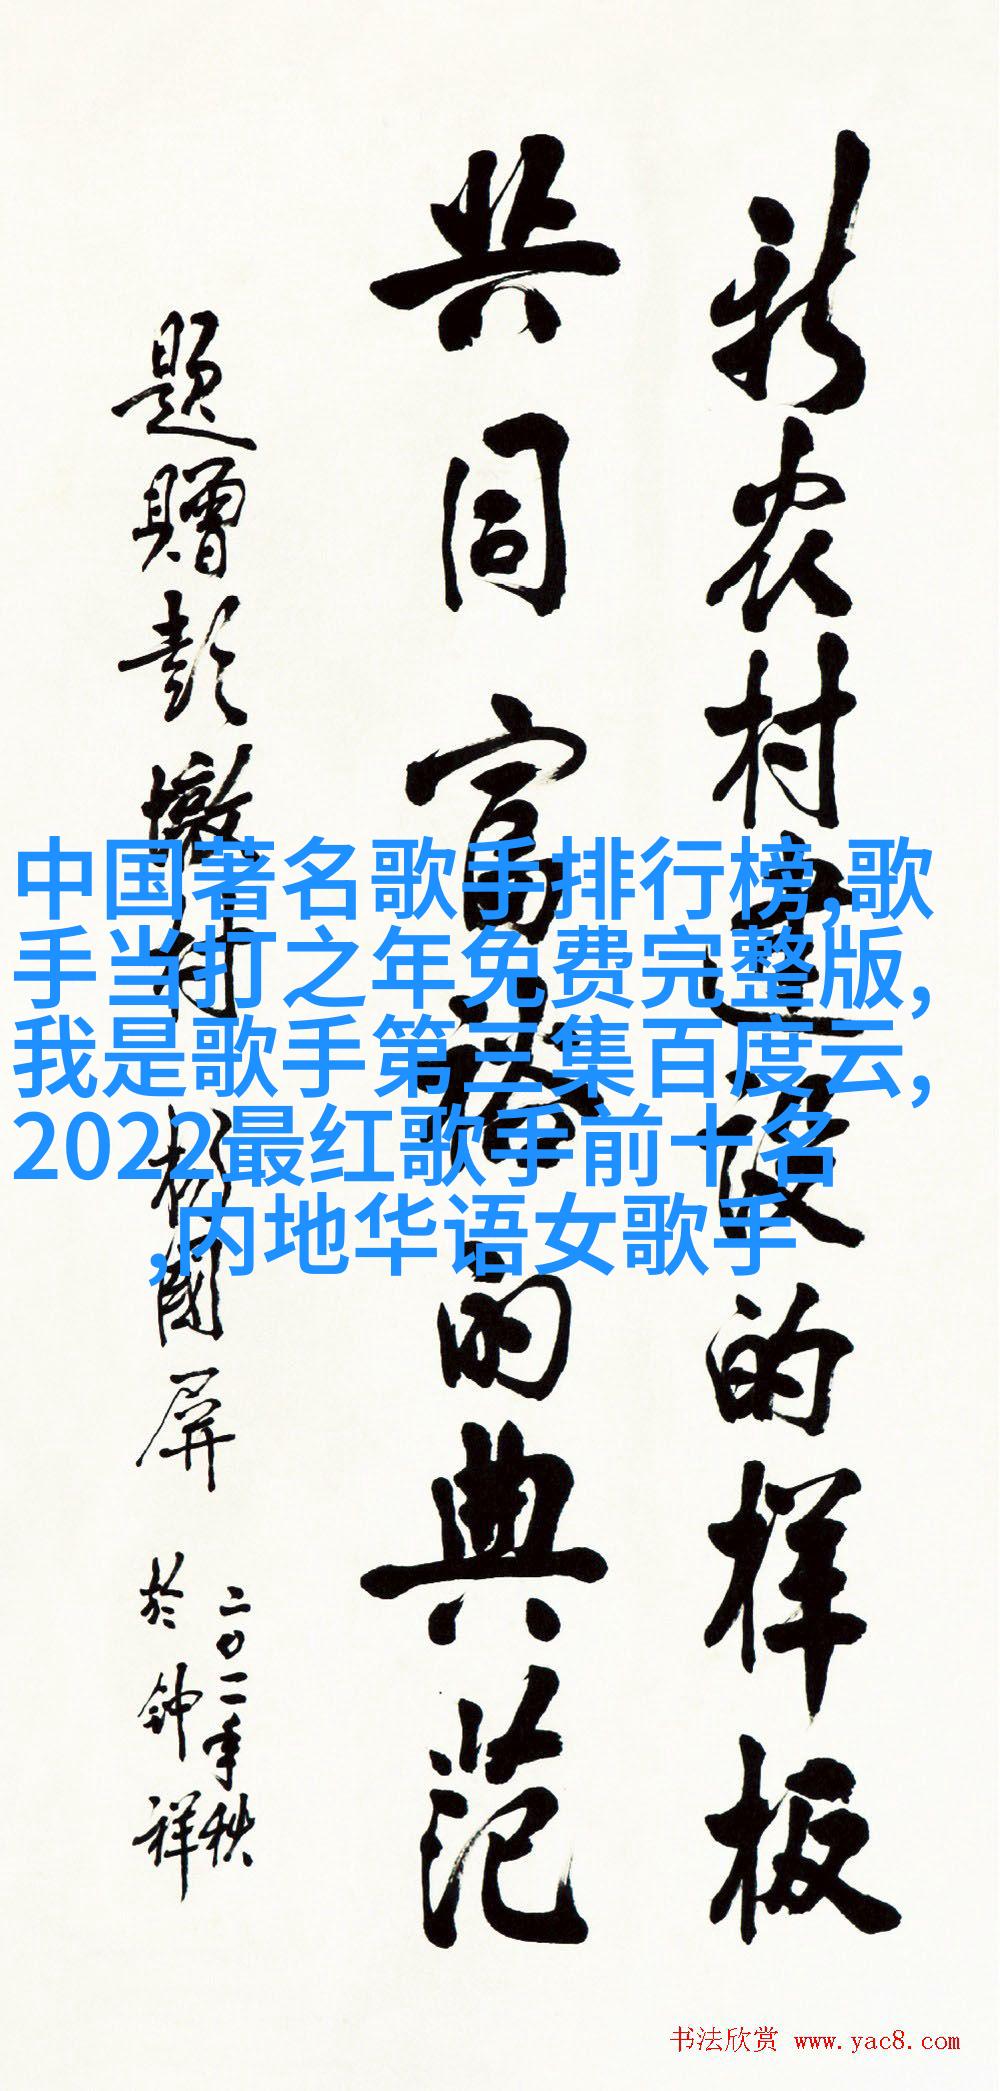 新农村建设的样板
共同富裕的典范
题赠彭墩村 杨国屏
二〇一一年秋
于钟祥
中国著名歌手排行榜,歌
手当打之年免费完整版,
我是歌手第三集百度云,
2022最红歌手前十名
,内地华语女歌手
书法欣赏 www.yac8.com